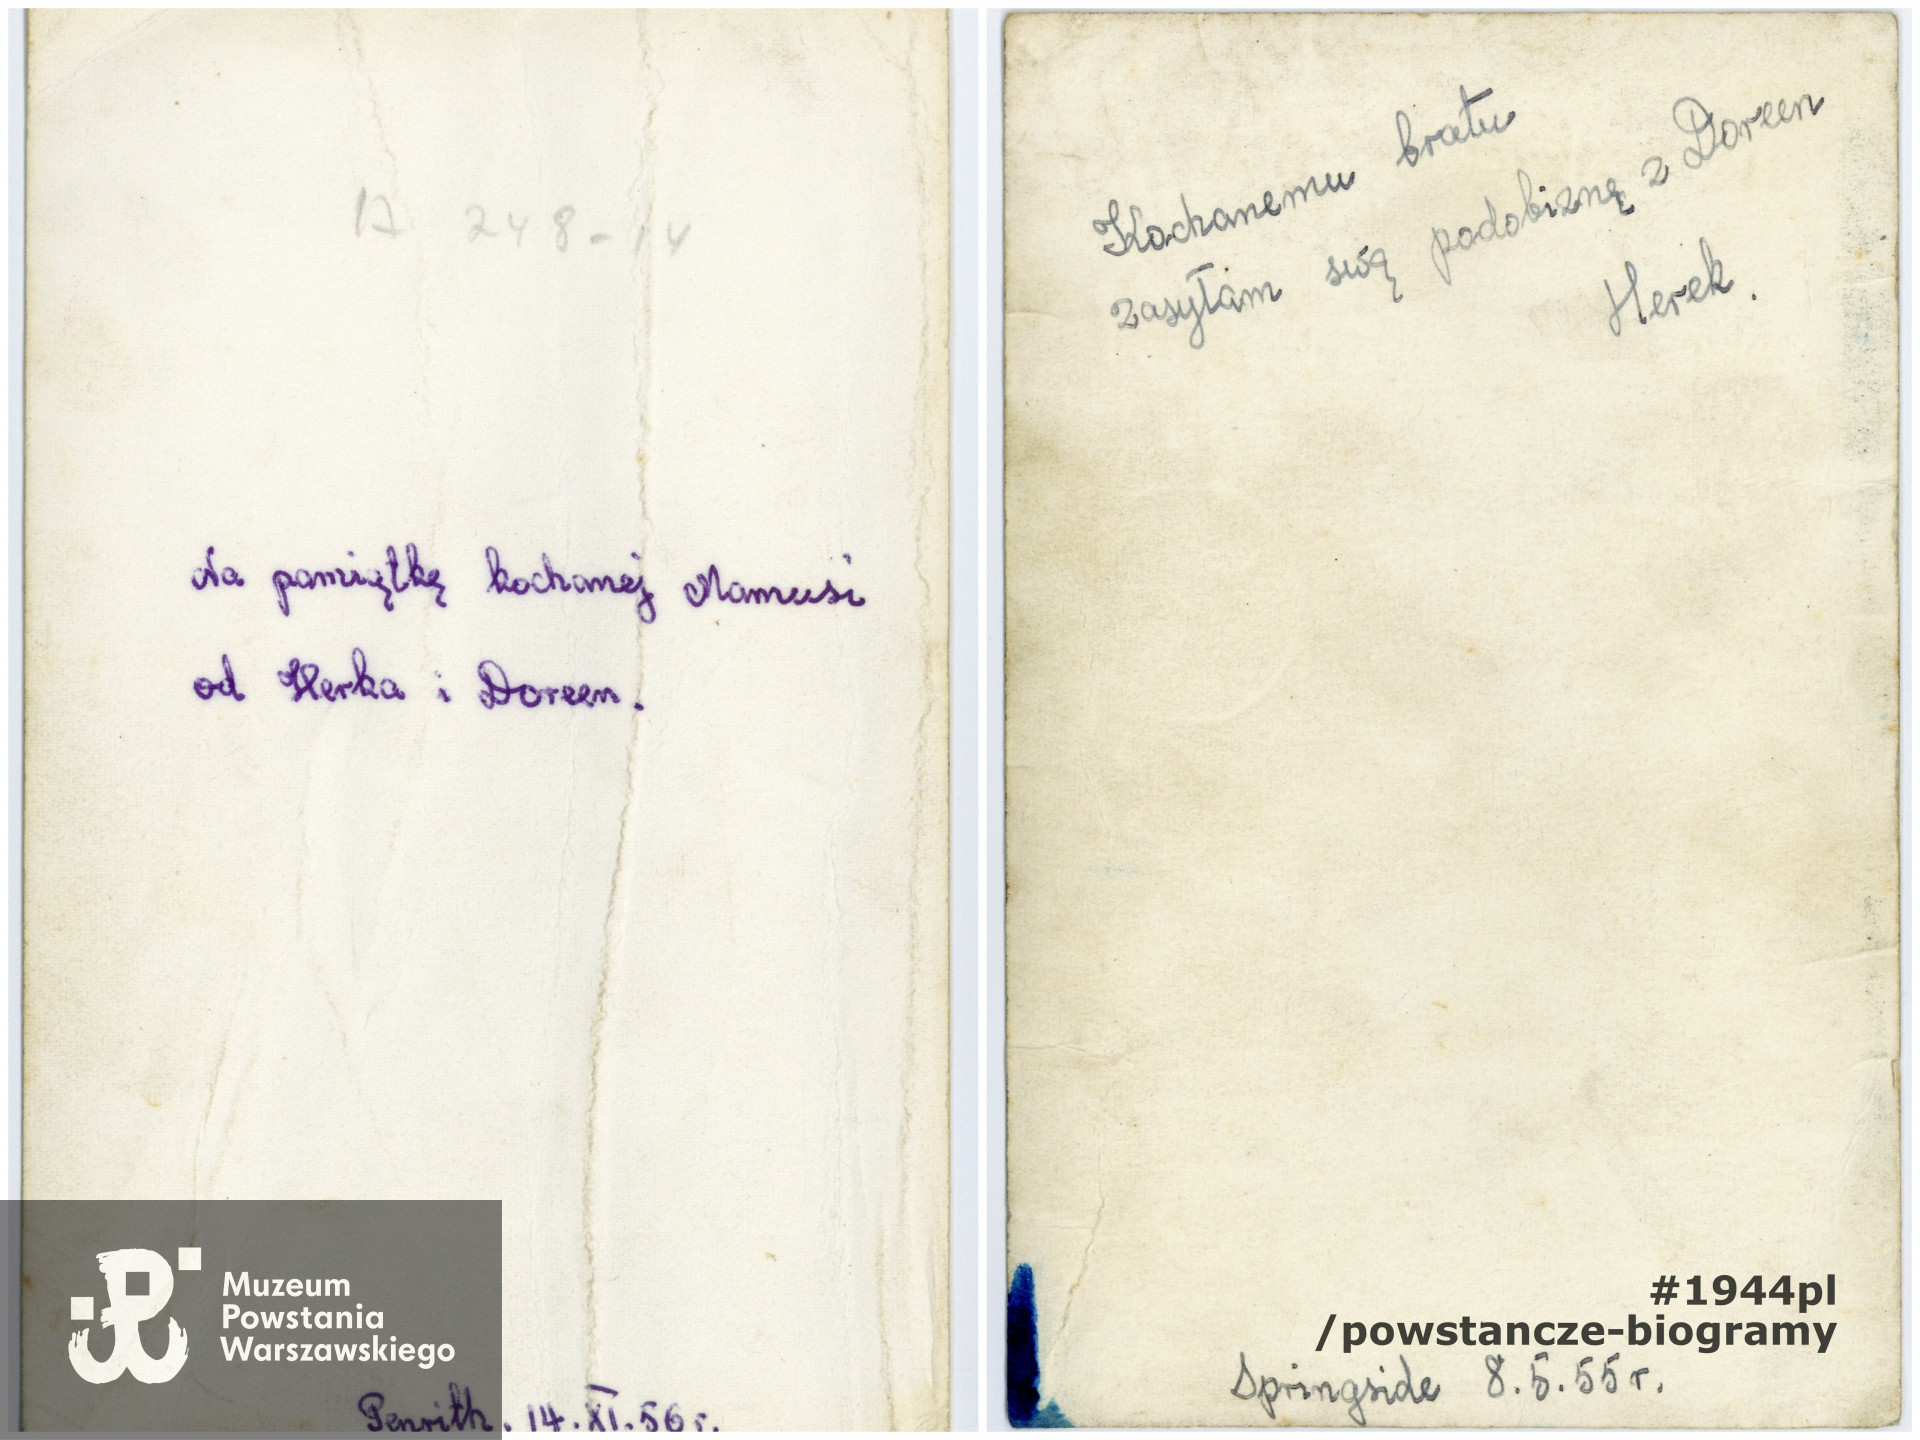 17 248-14
Na pamiątkę kochanej Mamusi
od Herka i Doreen.
Penrith. 14.XI.56 r.
Muzeum
Powstania
Warszawskiego
Kochanemu bratu
zasyłam swą podobiznę z Doreen
Herek.
#1944pl
/powstancze-biogramy
Springside 8.5.55 r.